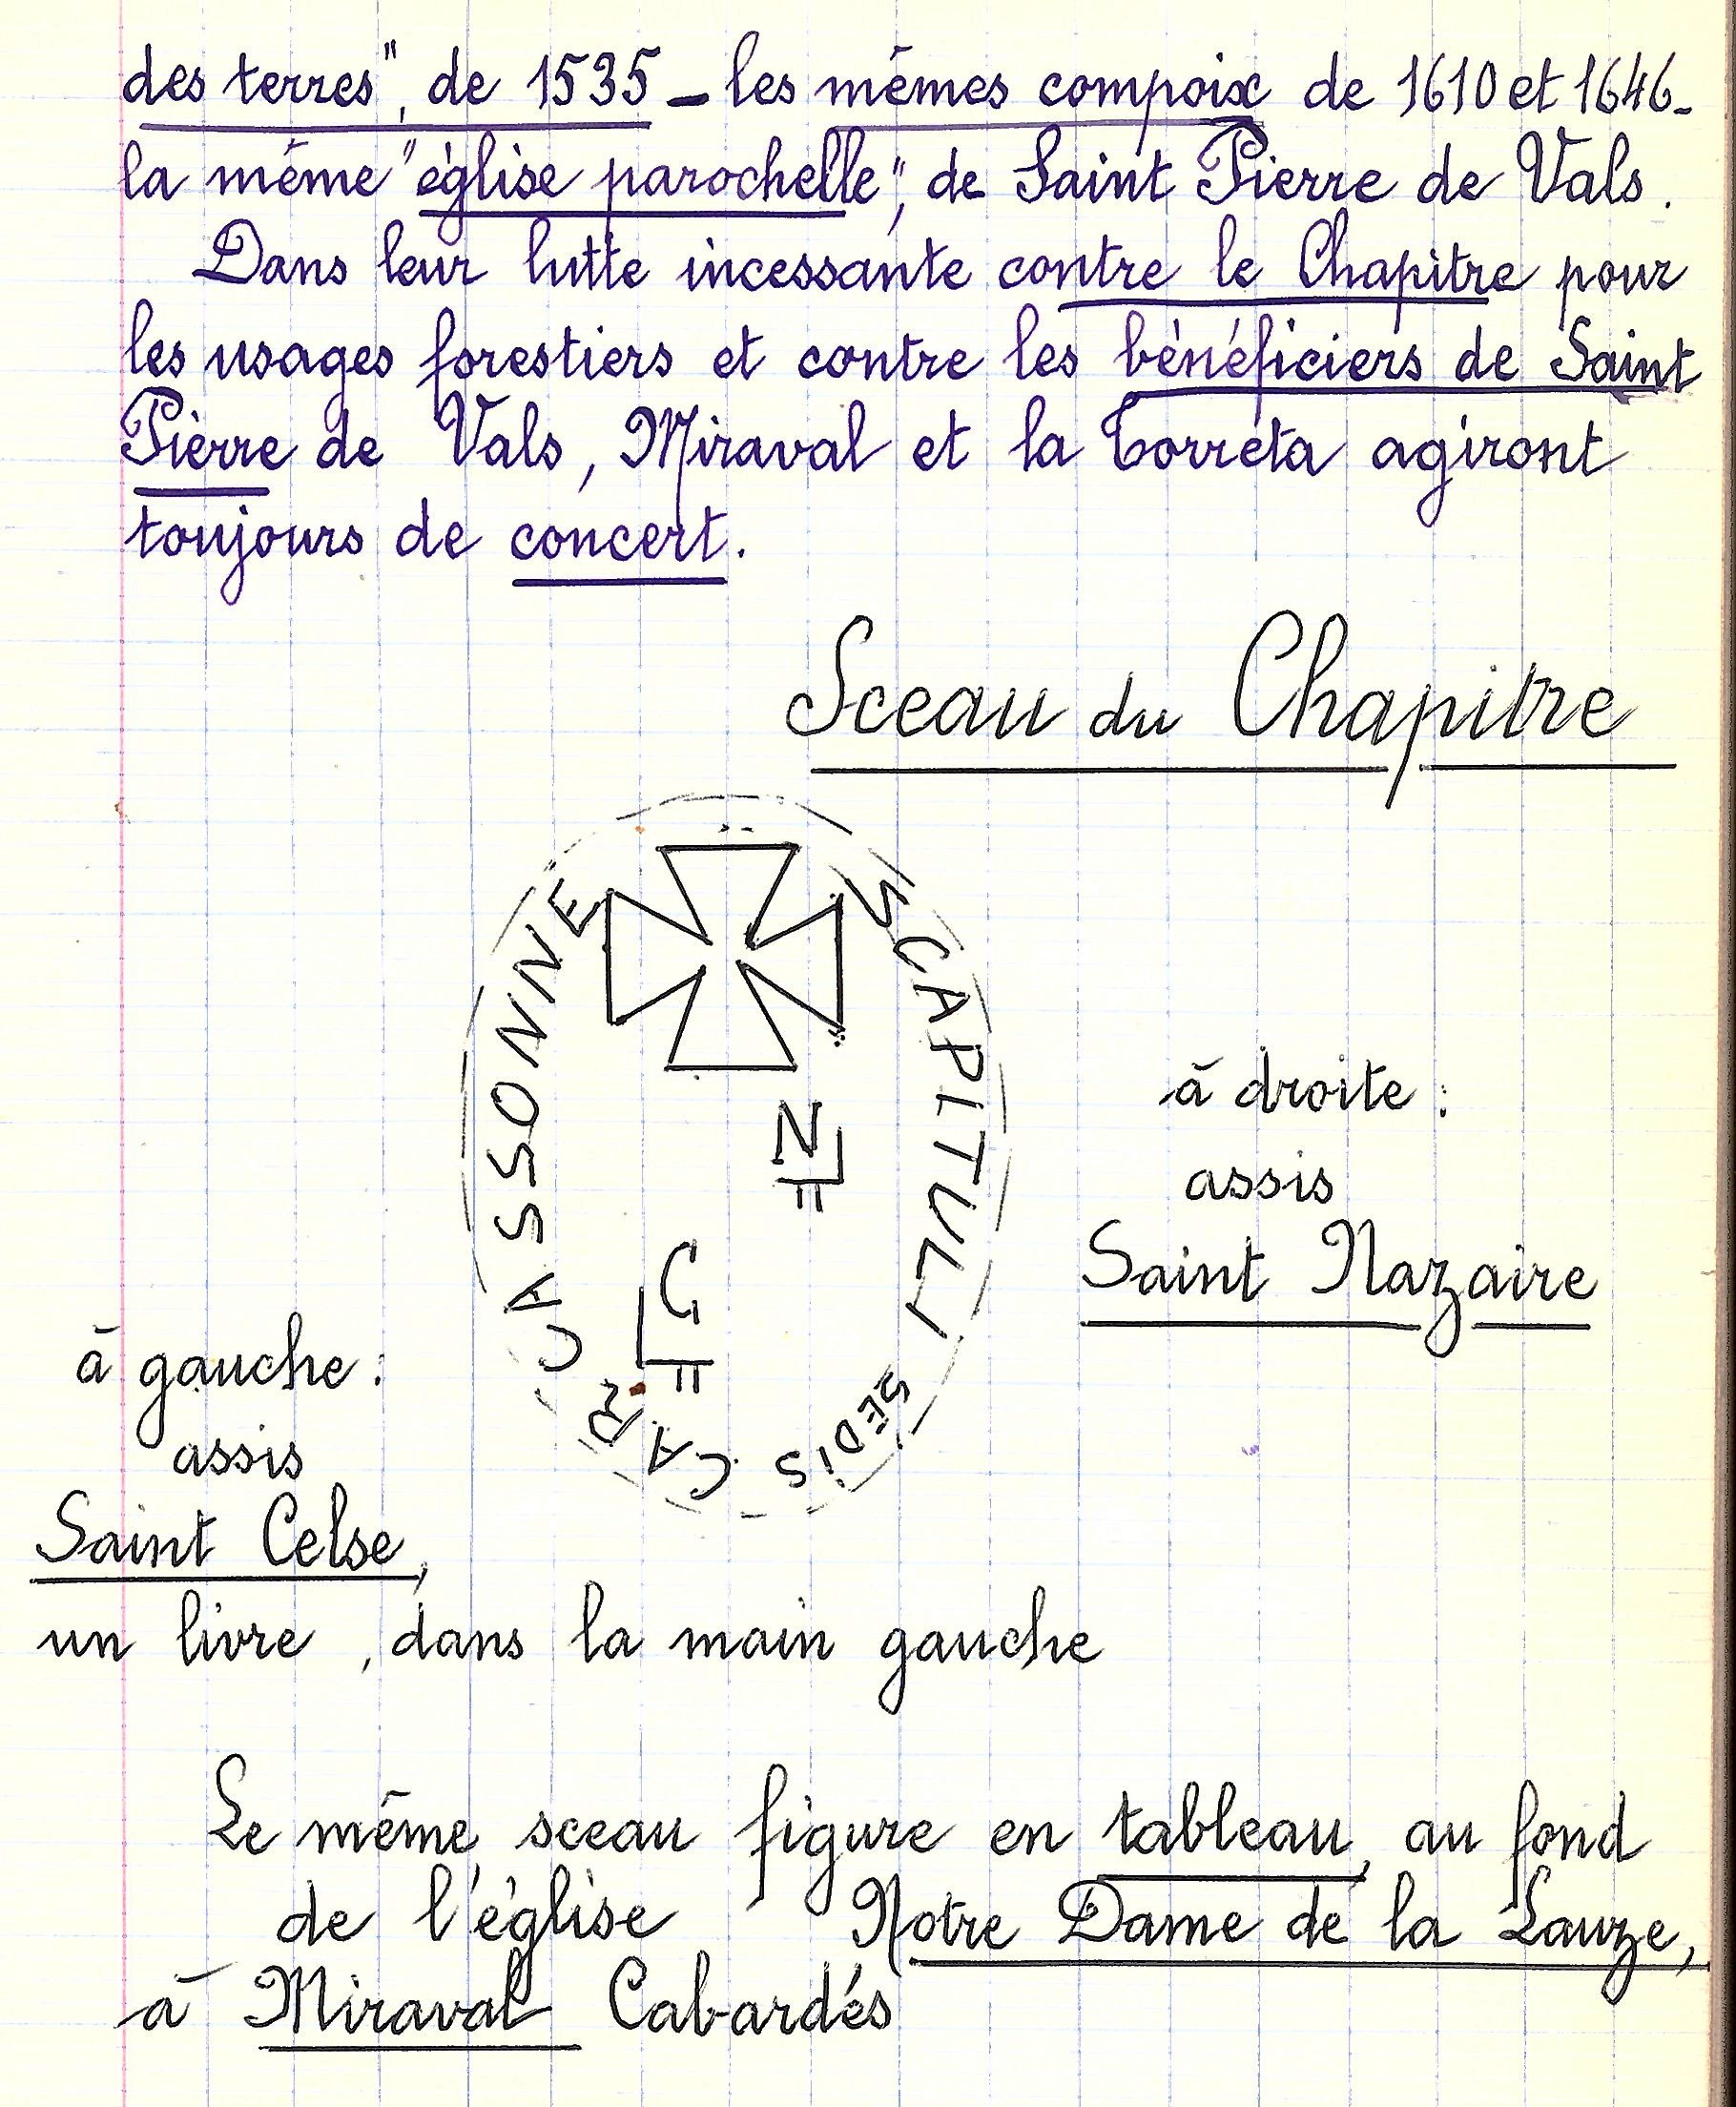 des terres", de 1535 _ les mêmes compoix de 1610 et 1646_
la même "église parochelle", de Saint Pierre de Vals.
Dans leur lutte incessante contre le Chapitre pour
les usages forestiers et contre les bénéficiers de Saint
Pierre de Vals, Miraval et la Torréta agiront
toujours de concert.
Sceau du Chapitre
S CAPITULI
SEDIS
CAR
CASSONNE
N
C
à droite :
assis
Saint Nazaire
à gauche :
assis
Saint Celse,
un livre, dans la main gauche
Le même sceau figure en tableau, au fond
de l'église Notre Dame de la Lauze,
à Miraval Cabardés